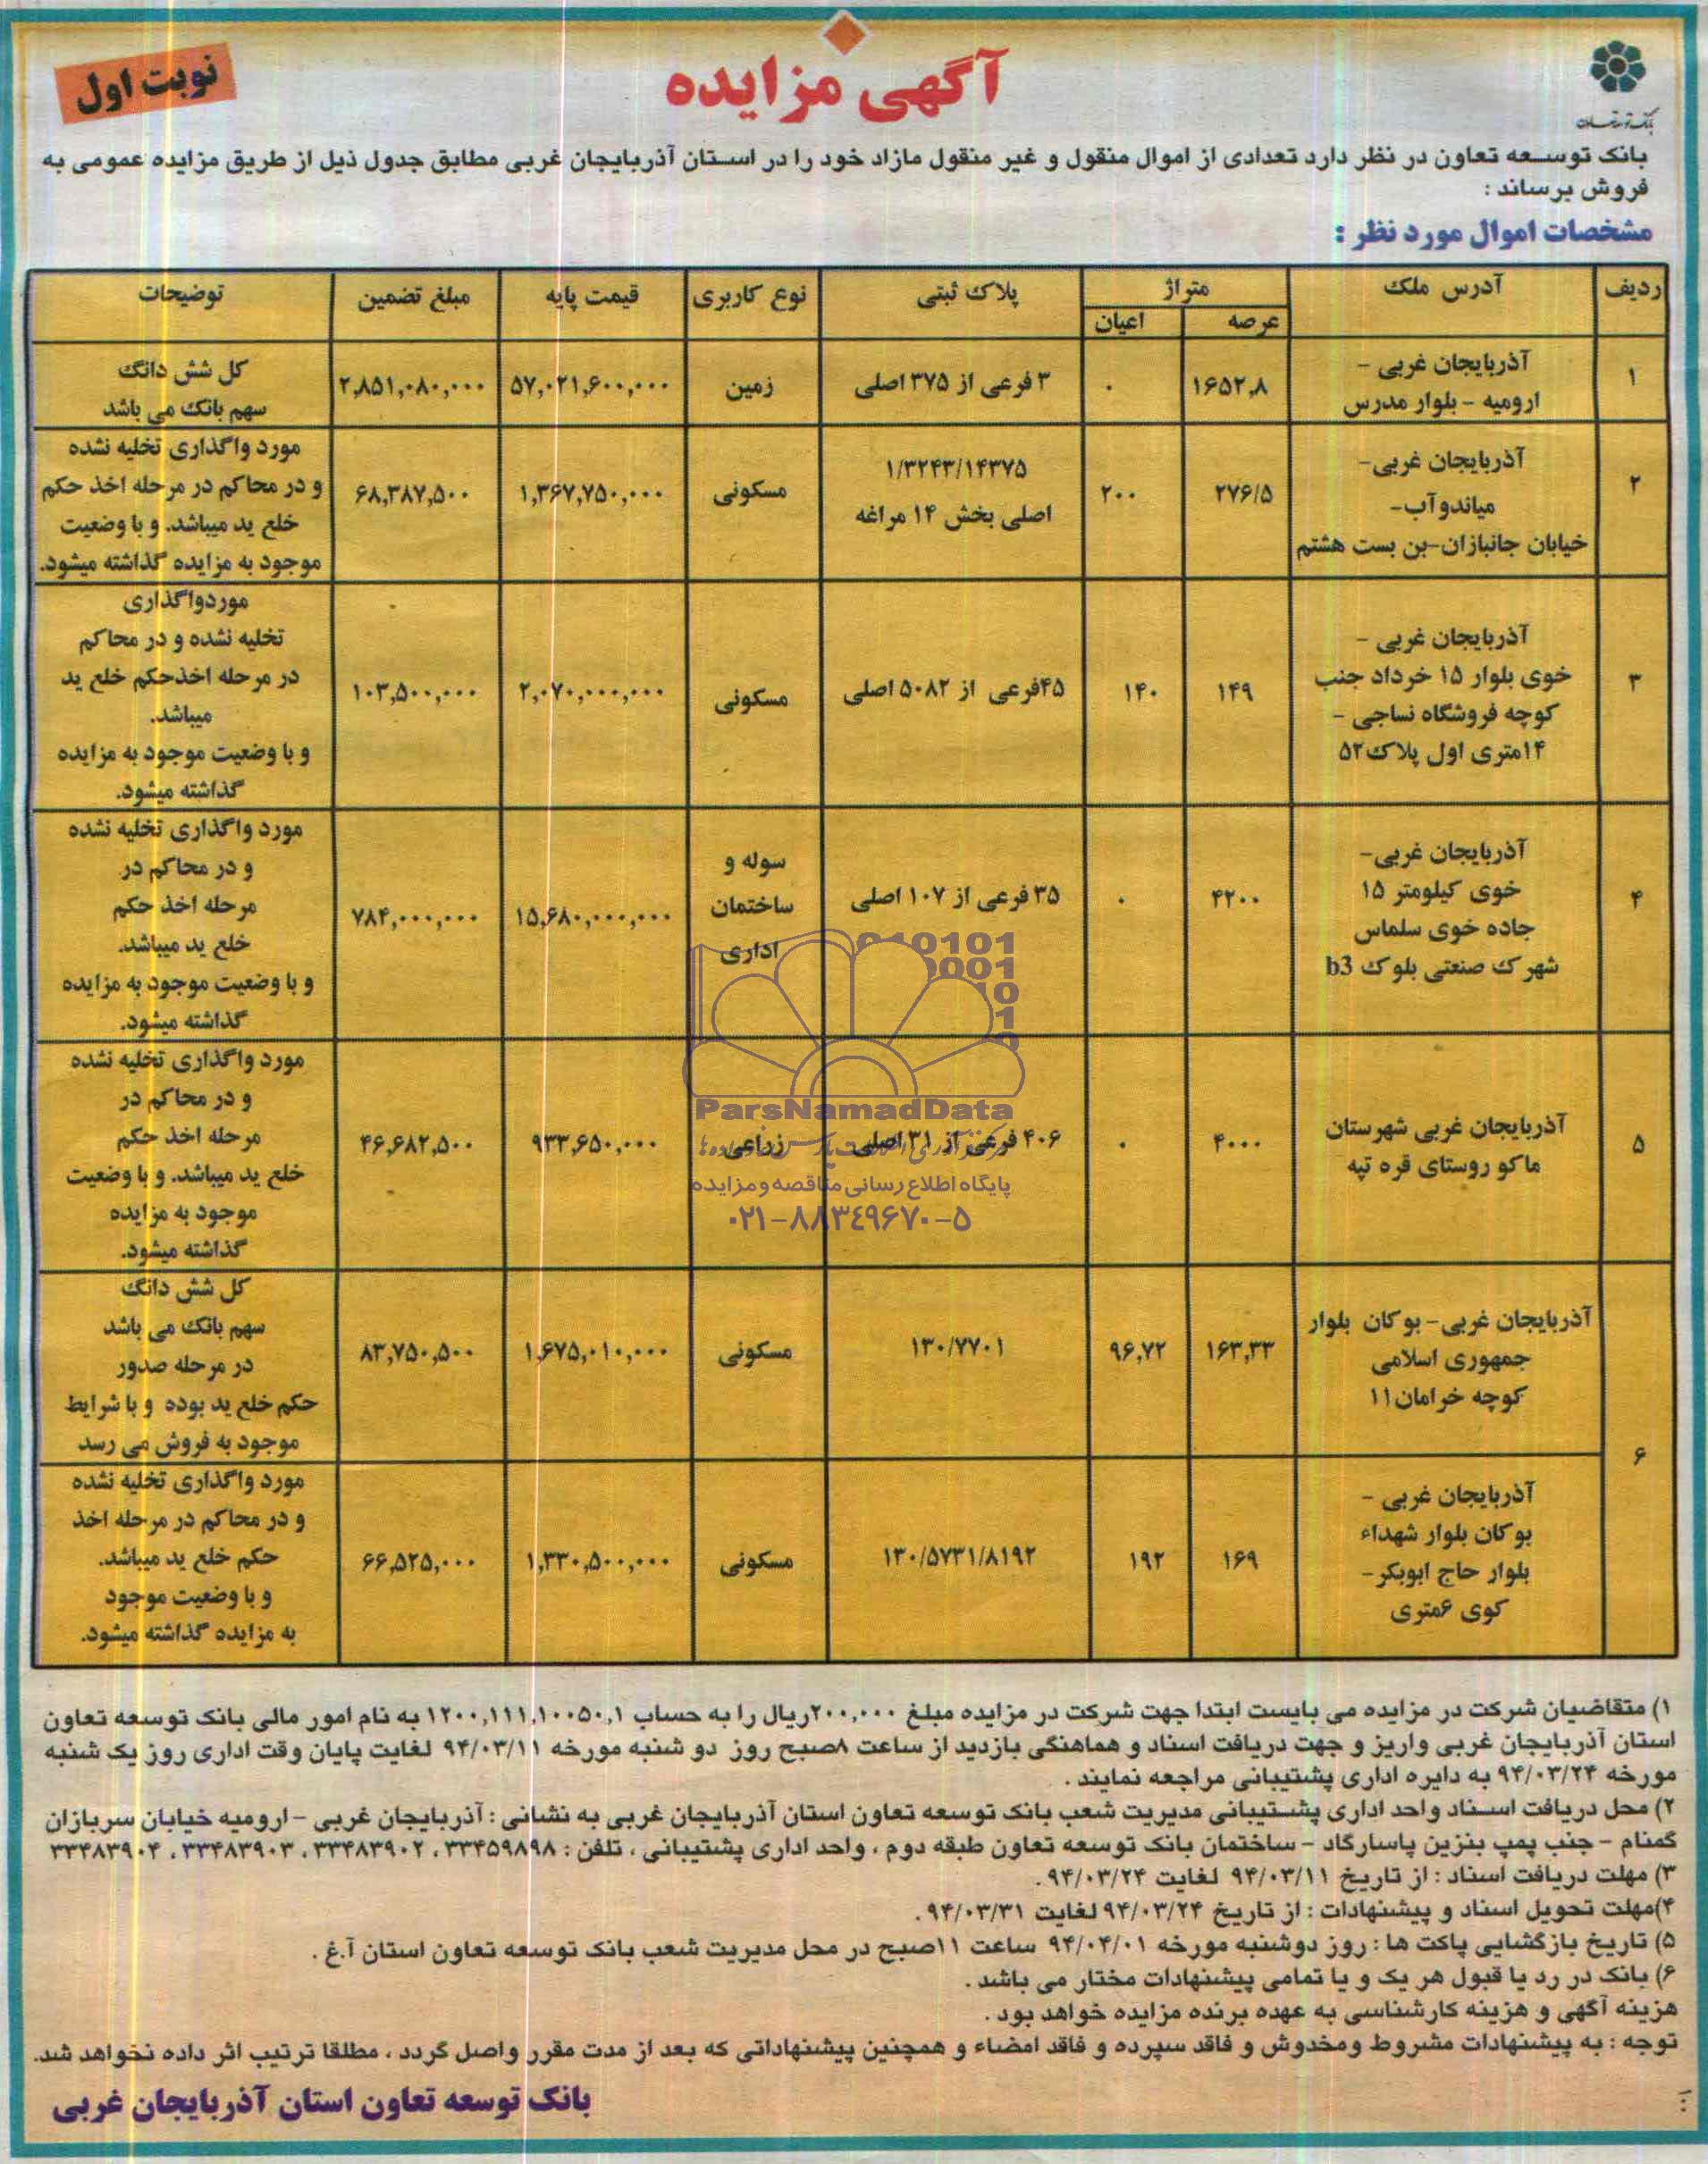 بانک توسعه تعاون
آگهی مزایده
نوبت اول
بانک توسعه تعاون در نظر دارد تعدادی از اموال منقول و غیر منقول مازاد خود را در استان آذربایجان غربی مطابق جدول ذیل از طریق مزایده عمومی به
فروش برساند :
مشخصات اموال مورد نظر :
ردیف آدرس ملک متراژ پلاک ثبتی نوع کاربری قیمت پایه مبلغ تضمین توضیحات
عرصه اعیان
۱
آذربایجان غربی –
ارومیه – بلوار مدرس
۱۶۵۲,۸
۰
۳ فرعی از ۳۷۵ اصلی
زمین
۵۷,۰۲۱,۶۰۰,۰۰۰
۲,۸۵۱,۰۸۰,۰۰۰
کل شش دانگ
سهم بانک می باشد
۲
آذربایجان غربی–
میاندوآب–
خیابان جانبازان–بن بست هشتم
۲۷۶/۵
۲۰۰
۱/۳۲۴۳/۱۴۳۷۵
اصلی بخش ۱۴ مراغه
مسکونی
۱,۳۶۷,۷۵۰,۰۰۰
۶۸,۳۸۷,۵۰۰
مورد واگذاری تخلیه نشده
و در محاکم در مرحله اخذ حکم
خلع ید میباشد. و با وضعیت
موجود به مزایده گذاشته میشود.
۳
آذربایجان غربی –
خوی بلوار ۱۵ خرداد جنب
کوچه فروشگاه نساجی –
۱۴متری اول پلاک۵۲
۱۴۹
۱۴۰
۴۵فرعی از ۵۰۸۲ اصلی
مسکونی
۲,۰۷۰,۰۰۰,۰۰۰
۱۰۳,۵۰۰,۰۰۰
موردواگذاری
تخلیه نشده و در محاکم
در مرحله اخذحکم خلع ید
میباشد.
و با وضعیت موجود به مزایده
گذاشته میشود.
۴
آذربایجان غربی–
خوی کیلومتر ۱۵
جاده خوی سلماس
شهرک صنعتی بلوک b3
۴۲۰۰
۰
۳۵ فرعی از ۱۰۷ اصلی
سوله و
ساختمان
اداری
۱۵,۶۸۰,۰۰۰,۰۰۰
۷۸۴,۰۰۰,۰۰۰
مورد واگذاری تخلیه نشده
و در محاکم در
مرحله اخذ حکم
خلع ید میباشد.
و با وضعیت موجود به مزایده
گذاشته میشود.
۵
آذربایجان غربی شهرستان
ماکو روستای قره تپه
۴۰۰۰
۰
۴۰۶ فرعی از ۳۱ اصلی
زراعی
۹۳۳,۶۵۰,۰۰۰
۴۶,۶۸۲,۵۰۰
مورد واگذاری تخلیه نشده
و در محاکم در
مرحله اخذ حکم
خلع ید میباشد. و با وضعیت
موجود به مزایده
گذاشته میشود.
۶
آذربایجان غربی– بوکان بلوار
جمهوری اسلامی
کوچه خرامان۱۱
۱۶۳,۳۳
۹۶,۷۲
۱۳۰/۷۷۰۱
مسکونی
۱,۶۷۵,۰۱۰,۰۰۰
۸۳,۷۵۰,۵۰۰
کل شش دانگ
سهم بانک می باشد
در مرحله صدور
حکم خلع ید بوده و با شرایط
موجود به فروش می رسد
آذربایجان غربی –
بوکان بلوار شهداء
بلوار حاج ابوبکر–
کوی ۶متری
۱۶۹
۱۹۲
۱۳۰/۵۷۳۱/۸۱۹۲
مسکونی
۱,۳۳۰,۵۰۰,۰۰۰
۶۶,۵۲۵,۰۰۰
مورد واگذاری تخلیه نشده
و در محاکم در مرحله اخذ
حکم خلع ید میباشد.
و با وضعیت موجود
به مزایده گذاشته میشود.
ParsNamadData
پایگاه اطلاع رسانی مناقصه و مزایده
۰۲۱–۸۸۳۴۹۶۷۰–۵
۱) متقاضیان شرکت در مزایده می بایست ابتدا جهت شرکت در مزایده مبلغ ۲۰۰,۰۰۰ریال را به حساب ۱۲۰۰,۱۱۱,۱۰۰۵۰,۱ به نام امور مالی بانک توسعه تعاون
استان آذربایجان غربی واریز و جهت دریافت اسناد و هماهنگی بازدید از ساعت ۸صبح روز دو شنبه مورخه ۹۴/۰۳/۱۱ لغایت پایان وقت اداری روز یک شنبه
مورخه ۹۴/۰۳/۲۴ به دایره اداری پشتیبانی مراجعه نمایند .
۲) محل دریافت اسناد واحد اداری پشتیبانی مدیریت شعب بانک توسعه تعاون استان آذربایجان غربی به نشانی : آذربایجان غربی – ارومیه خیابان سربازان
گمنام – جنب پمپ بنزین پاسارگاد – ساختمان بانک توسعه تعاون طبقه دوم ، واحد اداری پشتیبانی ، تلفن : ۳۳۴۵۹۸۹۸ ، ۳۳۴۸۳۹۰۲ ، ۳۳۴۸۳۹۰۳ ، ۳۳۴۸۳۹۰۴
۳) مهلت دریافت اسناد : از تاریخ ۹۴/۰۳/۱۱ لغایت ۹۴/۰۳/۲۴ .
۴)مهلت تحویل اسناد و پیشنهادات : از تاریخ ۹۴/۰۳/۲۴ لغایت ۹۴/۰۳/۳۱ .
۵) تاریخ بازگشایی پاکت ها : روز دوشنبه مورخه ۹۴/۰۴/۰۱ ساعت ۱۱صبح در محل مدیریت شعب بانک توسعه تعاون استان آ.غ .
۶) بانک در رد یا قبول هر یک و یا تمامی پیشنهادات مختار می باشد .
هزینه آگهی و هزینه کارشناسی به عهده برنده مزایده خواهد بود .
توجه : به پیشنهادات مشروط ومخدوش و فاقد سپرده و فاقد امضاء و همچنین پیشنهاداتی که بعد از مدت مقرر واصل گردد ، مطلقا ترتیب اثر داده نخواهد شد.
بانک توسعه تعاون استان آذربایجان غربی